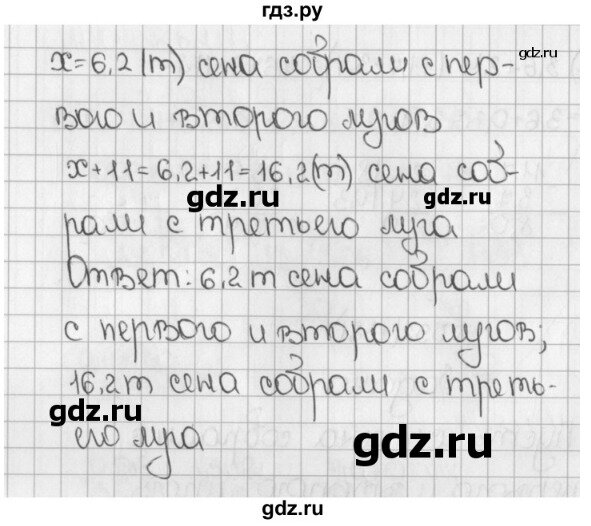 гдз.ру
x=6,2 (т) сена собрали с пер-
gdz.ru
вого и второго лугов
x+11=6,2+11=16,2(т) сена соб-
gdz.ru gdz.ru
рали с третьего луга
Ответ: 6,2 т сена собрали
с первого и второго лугов;
16,2т сена собрали с треть-
gdz.ru
его луга
gdz.ru
gdz.ru